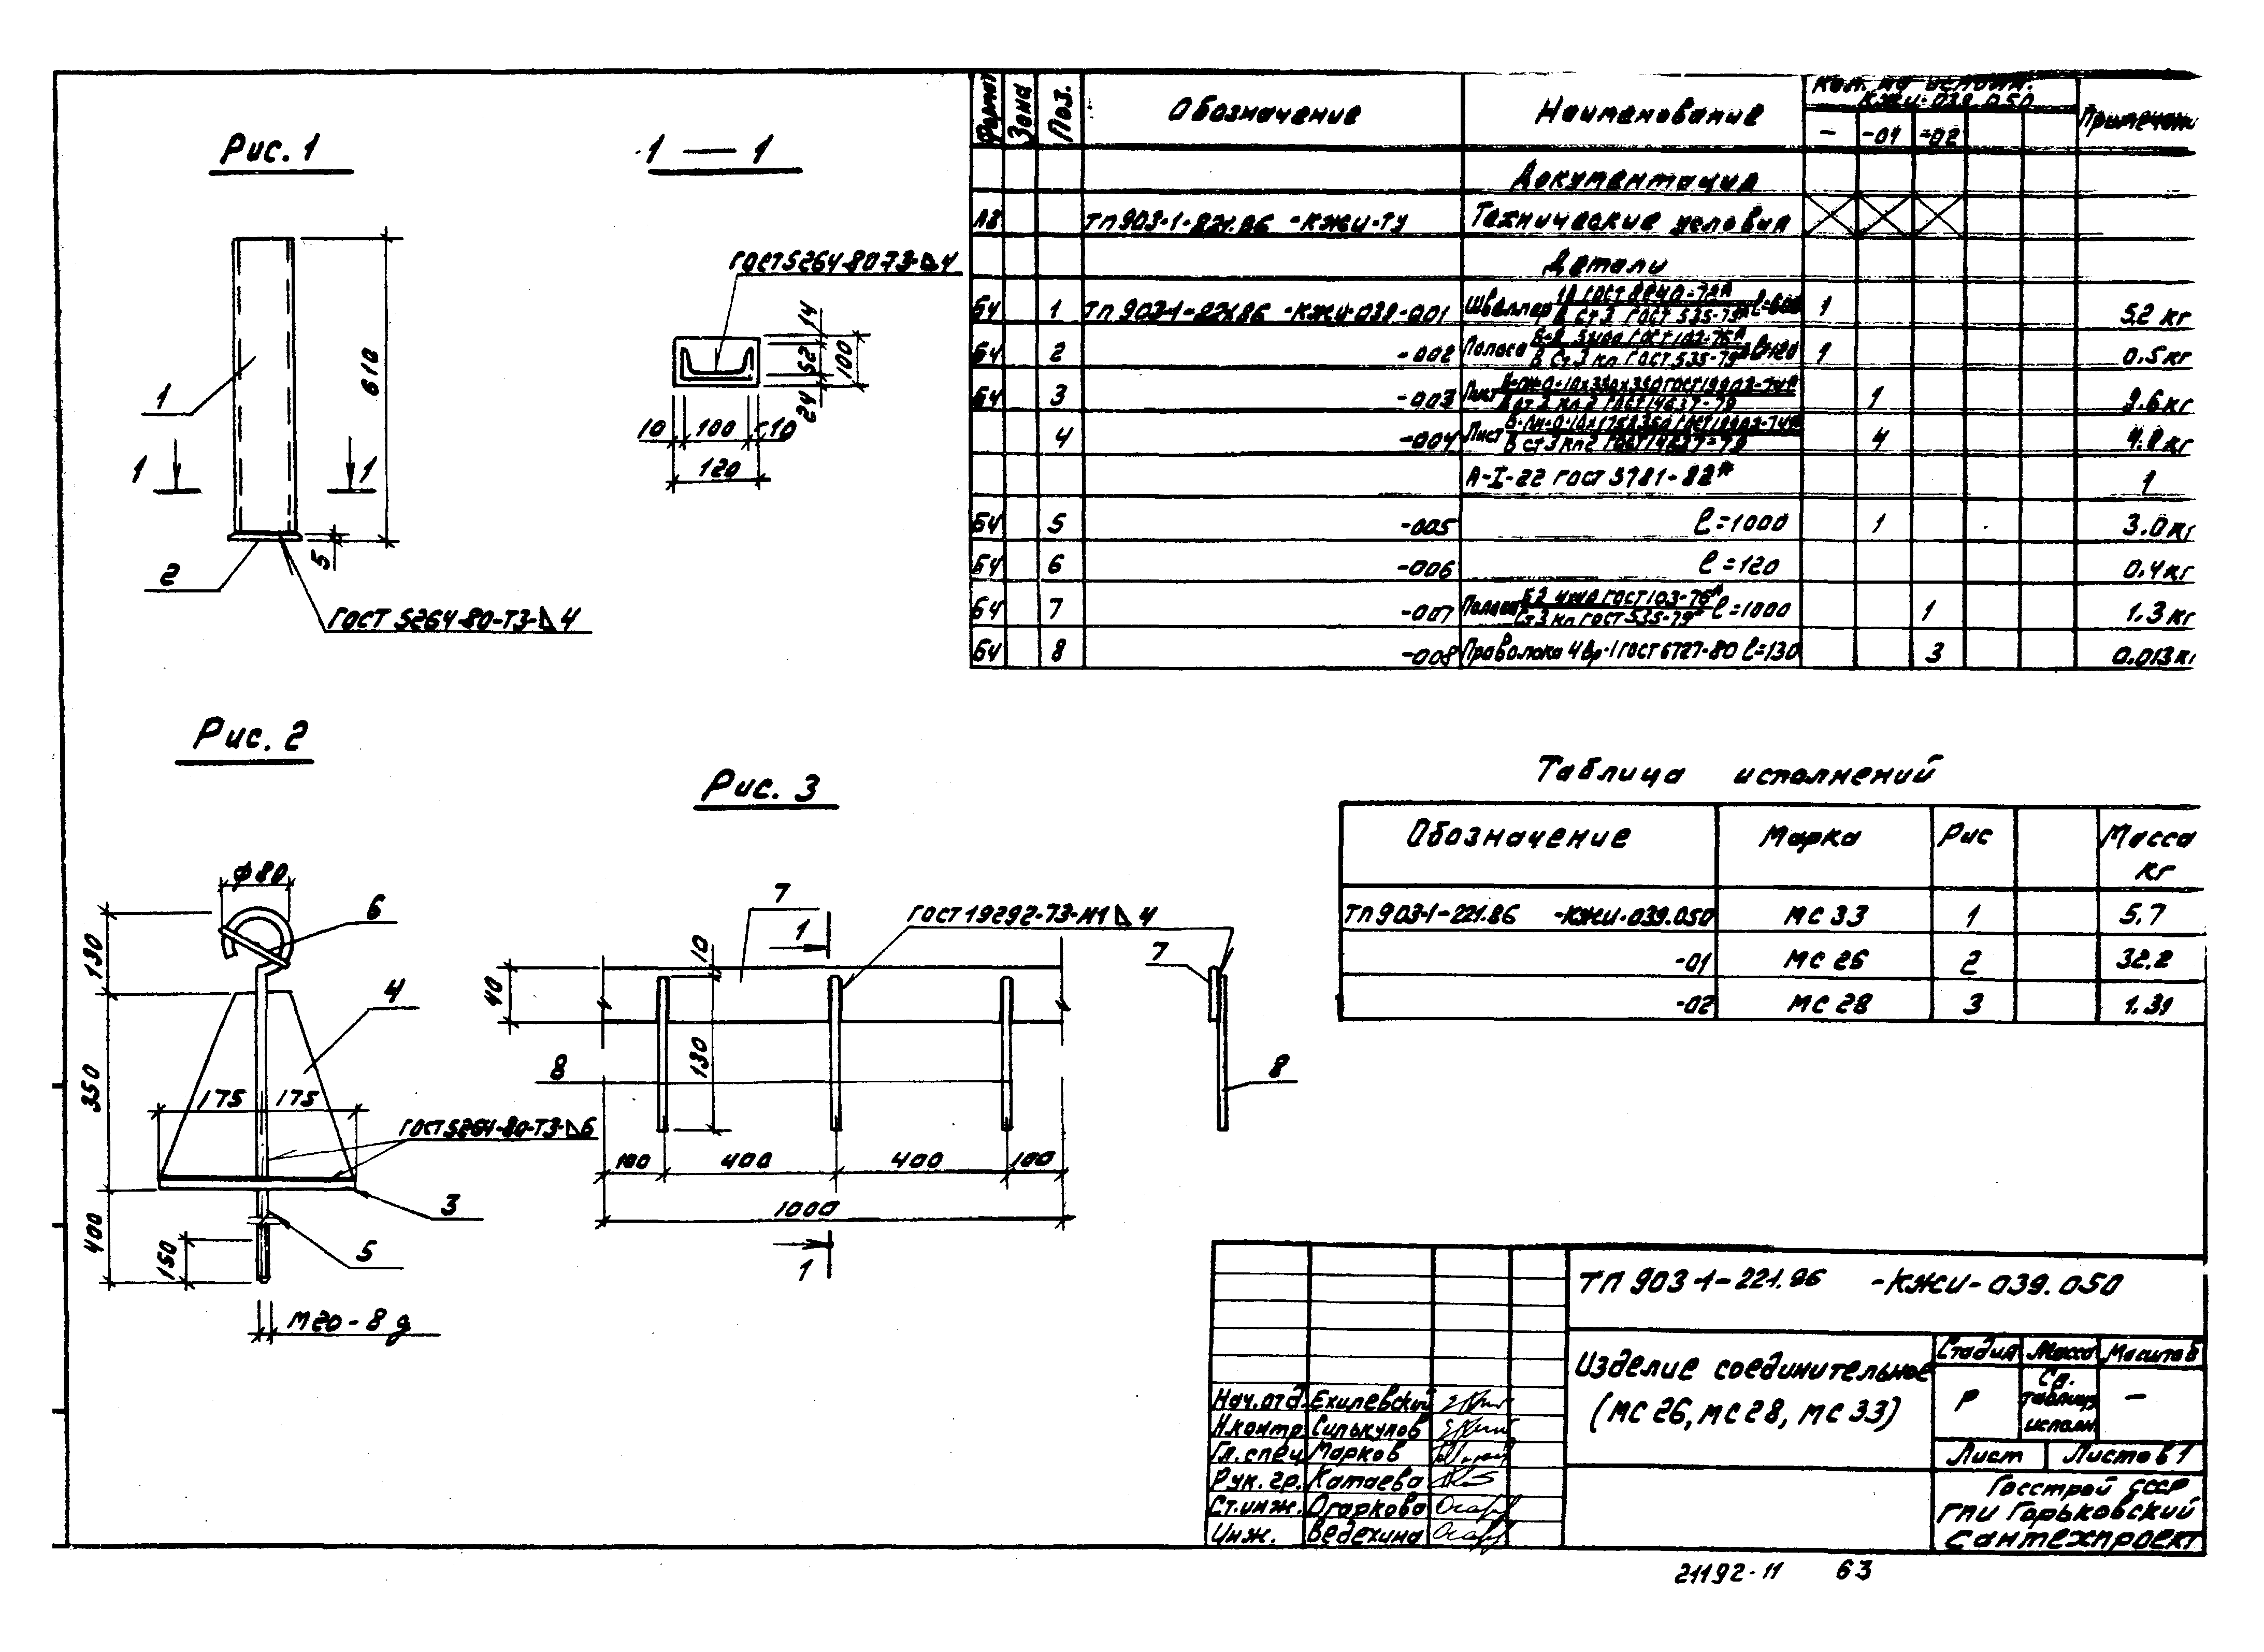 Рис. 1
1 — 1
610
5
1
2
1
1
ГОСТ 5264-80-Т3-⊿4
ГОСТ 5264-80-Т3-⊿4
14
52
24
100
10
100
10
120
Формат
Зона
Поз.
Обозначение
Наименование
Кол. на исполн.
КЖИ-039.050
Примечан
-
-01
-02
Документация
ТП 903-1-221.86 -КЖИ-ТУ
Технические условия
Детали
БЧ 1 ТП 903-1-221.86 -КЖИ-039-001 Швеллер 10 ГОСТ 8240-72* ℓ=600 1 5.2 кг
В Ст 3 ГОСТ 535-79*
БЧ 2 -002 Полоса ГОСТ 103-76* ℓ=120 1 0.5 кг
В Ст.3 кп ГОСТ 535-79*
БЧ 3 -003 Лист Б-ПН-О-10х350х350 ГОСТ 19903-74* 1 9.6 кг
ГОСТ 14637-79
4 -004 Лист Б-ПН-О-10х175х350 ГОСТ 19903-74* 4 4.8 кг
В ст 3 кп 2 ГОСТ 14637-79
А-I-22 ГОСТ 5781-82* 1
БЧ 5 -005 ℓ=1000 1 3.0 кг
БЧ 6 -006 ℓ=120 0.4 кг
БЧ 7 -007 Полоса Б2 4х40 ГОСТ 103-76* ℓ=1000 1 1.3 кг
Ст 3 кп ГОСТ 535-79*
БЧ 8 -008 Проволока 4Вр-I ГОСТ 6727-80 ℓ=130 3 0.013 кг
Рис. 2
ф80
130
350
400
150
175
175
6
4
3
5
ГОСТ 5264-80-Т3-⊿6
М20-8g
Рис. 3
7
1
ГОСТ 19292-73-Н1⊿4
10
40
130
8
100
400
400
100
1000
1
7
8
Таблица исполнений
Обозначение Марка Рис Масса
кг
ТП 903-1-221.86 -КЖИ-039.050 МС 33 1 5.7
-01 МС 26 2 32.2
-02 МС 28 3 1.39
ТП 903-1-221.86 -КЖИ-039.050
Изделие соединительное
(МС 26, МС 28, МС 33)
Стадия Масса Масштаб
Р
См.
таблицу
исполн.
—
Лист Листов 1
Госстрой СССР
ГПИ Горьковский
Сантехпроект
Нач.отд. Ехилевский
Н.контр. Силькунов
Гл.спец. Марков
Рук. гр. Катаева
Ст.инж. Огаркова
Инж. Ведехина
21192-11 63